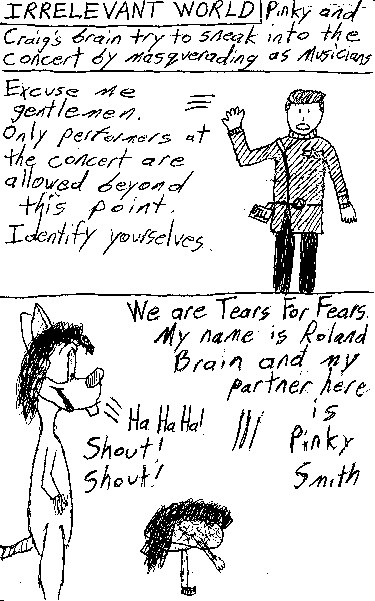 IRRELEVANT WORLD Pinky and
Craig's brain try to sneak into the
concert by masquerading as Musicians
Excuse me
gentlemen.
Only performers at
the concert are
allowed beyond
this point.
Identify yourselves.
We are Tears For Fears.
My name is Roland
Brain and my
partner here
is
Pinky
Smith
Ha Ha Ha!
Shout!
Shout!